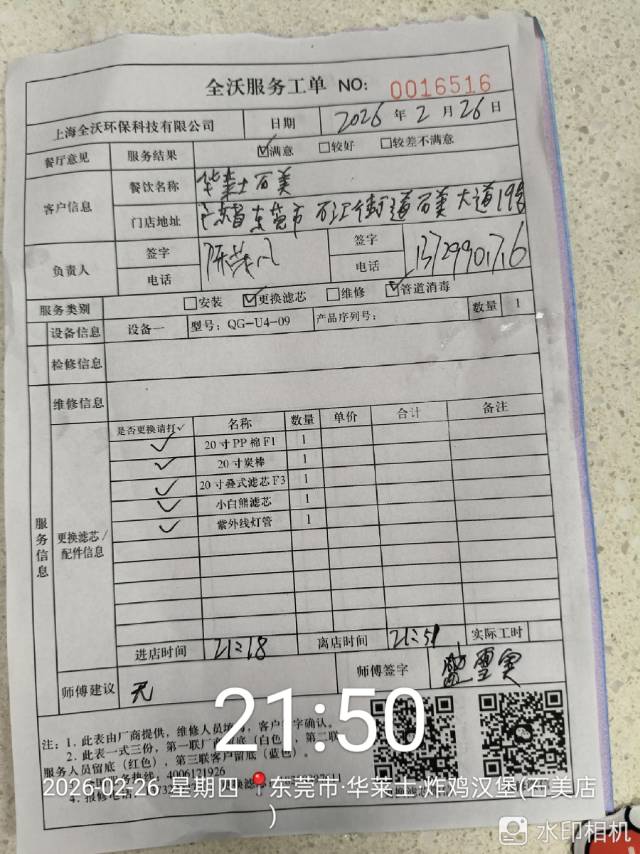 全沃服务工单 NO: 0016516
上海全沃环保科技有限公司 日期 2026 年 2 月 26 日
餐厅意见 服务结果 ☑满意 □较好 □较差不满意
客户信息 餐饮名称 华莱士石美
门店地址 广东省东莞市石美大道19号
负责人 签字 签字
电话 电话
服务类别 □安装 ☑更换滤芯 □维修 ☑管道消毒
设备信息 设备一 型号: QG-U4-09 产品序列号: 数量 1
检修信息
维修信息
服务信息 更换滤芯/配件信息
是否更换请打✓ 名称 数量 单价 合计 备注
✓ 20寸PP棉F1 1
✓ 20寸炭棒 1
✓ 20寸叠式滤芯F3 1
✓ 小白熊滤芯 1
✓ 紫外线灯管 1
进店时间 21:18 离店时间 21:51 实际工时
师傅建议 无 师傅签字
21:50
注: 1. 此表由厂商提供, 维修人员填写, 客户签字确认。
2. 此表一式三份, 第一联厂商留底(白色), 第二联
服务人员留底(红色), 第三联客户留底(蓝色)。
务热线: 4006121926
4. 报修电话:
2026-02-26 星期四 东莞市·华莱士·炸鸡汉堡(石美店
)
水印相机